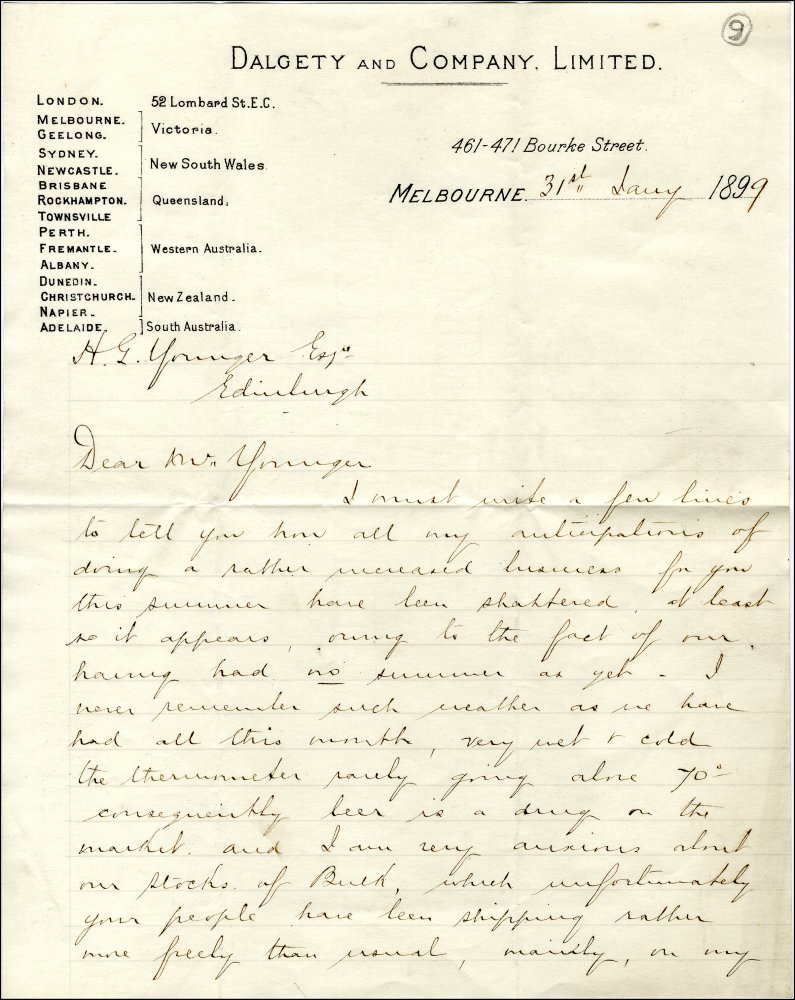 9
DALGETY AND COMPANY, LIMITED.
LONDON. 52 Lombard St. E.C.
MELBOURNE.
GEELONG. Victoria.
SYDNEY.
NEWCASTLE. New South Wales.
BRISBANE
ROCKHAMPTON. Queensland.
TOWNSVILLE
PERTH.
FREMANTLE. Western Australia.
ALBANY.
DUNEDIN.
CHRISTCHURCH. New Zealand.
NAPIER.
ADELAIDE. South Australia.
461-471 Bourke Street.
MELBOURNE. 31st Jany 1899
H. G. Younger Esqre
Edinburgh
Dear Mr. Younger
I must write a few lines
to tell you how all my anticipations of
doing a rather increased business for you
this summer have been shattered, at least
so it appears, owing to the fact of our
having had no summer as yet - I
never remember such weather as we have
had all this month, very wet & cold
the thermometer rarely going above 70°
consequently beer is a drug on the
market. and I am very anxious about
our stocks of Bulk, which unfortunately
your people have been shipping rather
more freely than usual, mainly, on my